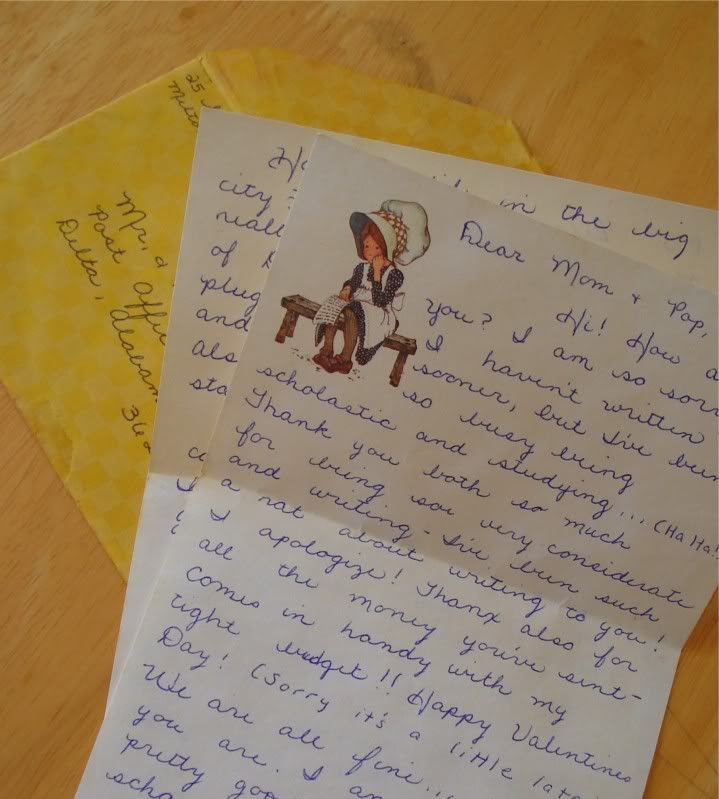 25
Mr. &
Post Offi
Delta, Alabam
362
in the big
city
reall
of
plug
and
als
sta
Dear Mom & Pop,
Hi! How a
you? I am so sorr
I haven't written
sooner, but I've been
so busy being
scholastic and studying... (Ha Ha!
Thank you both so much
for being sox very considerate
and writing - I've been such
a rat about writing to you!
I apologize! Thanx also for
all the money you've sent -
comes in handy with my
tight budget!! Happy Valentines
Day! (Sorry it's a little late)
We are all fine...
you are. I am
pretty goo
scho